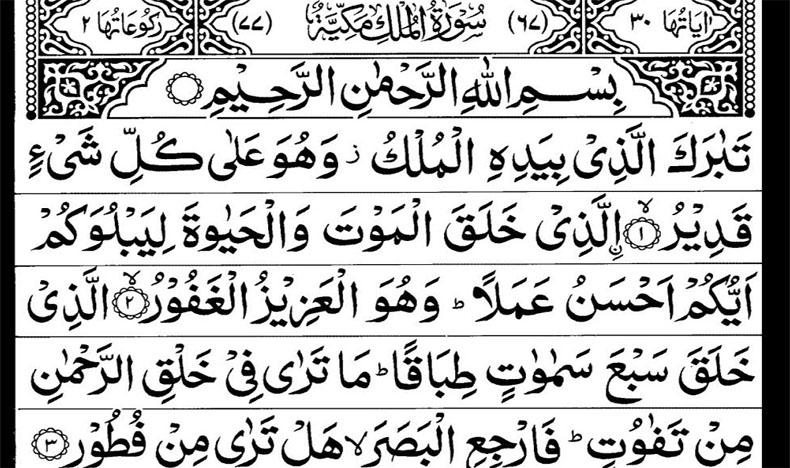 اٰیَاتُهَا ٣٠ (٦٧) سُوْرَةُ الْمُلْكِ مَكِّيَّةٌ (٧٧) رُكُوْعَاتُهَا ٢
بِسْمِ اللّٰهِ الرَّحْمٰنِ الرَّحِيْمِ
تَبٰرَكَ الَّذِیْ بِیَدِهِ الْمُلْكُ ز وَهُوَ عَلٰی كُلِّ شَیْءٍ
قَدِیْرُ ۙ﴿١﴾ اِ۟لَّذِیْ خَلَقَ الْمَوْتَ وَالْحَیٰوةَ لِیَبْلُوَكُمْ
اَیُّكُمْ اَحْسَنُ عَمَلًا ؕ وَهُوَ الْعَزِیْزُ الْغَفُوْرُ ۙ﴿٢﴾ الَّذِیْ
خَلَقَ سَبْعَ سَمٰوٰتٍ طِبَاقًا ؕ مَا تَرٰی فِیْ خَلْقِ الرَّحْمٰنِ
مِنْ تَفٰوُتٍ ؕ فَارْجِعِ الْبَصَرَ ۙ هَلْ تَرٰی مِنْ فُطُوْرٍ ﴿٣﴾